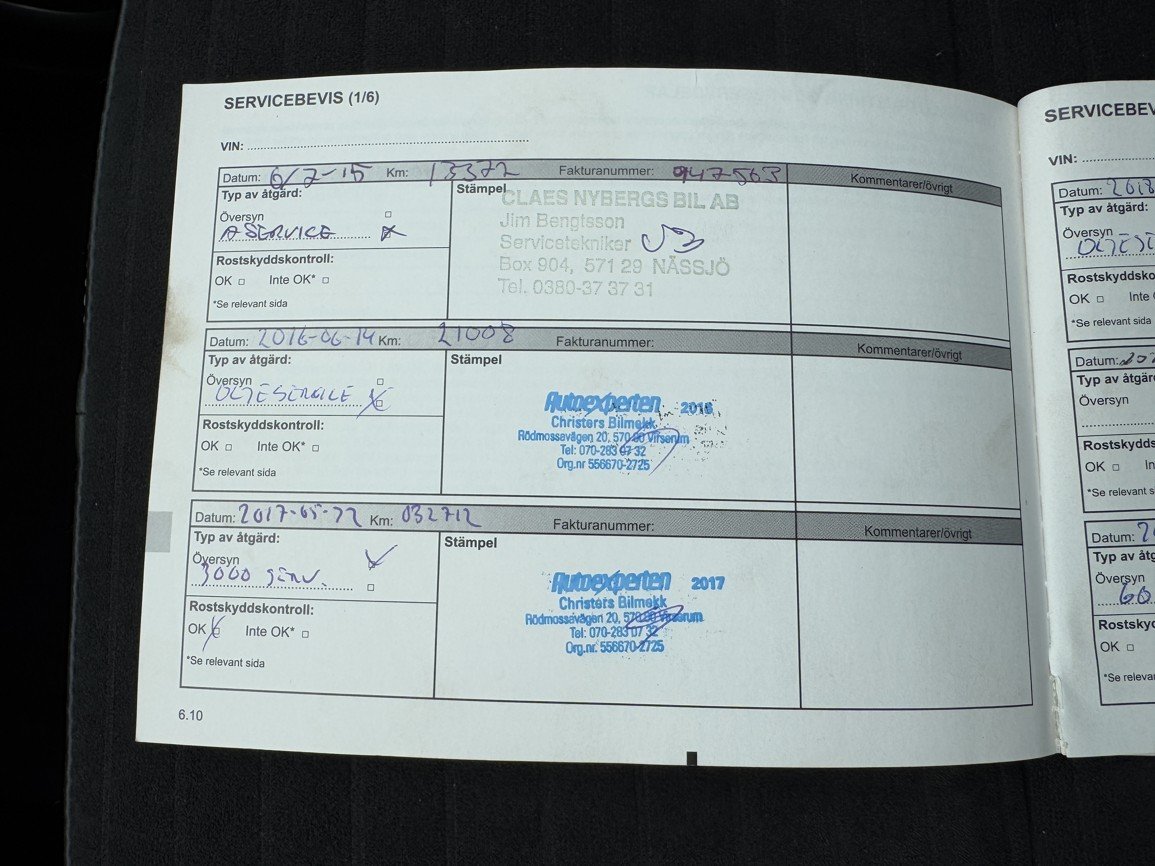 SERVICEBEVIS (1/6)
VIN:
Datum: 6/7-15 Km: 13372 Fakturanummer: 947563 Kommentarer/övrigt
Typ av åtgärd:
Översyn
A SERVICE
Rostskyddskontroll:
OK Inte OK*
*Se relevant sida
Stämpel
CLAES NYBERGS BIL AB
Jim Bengtsson
Servicetekniker
Box 904, 571 29 NÄSSJÖ
Tel. 0380-37 37 31
Datum: 2016-06-14 Km: 21008 Fakturanummer: Kommentarer/övrigt
Typ av åtgärd:
Översyn
OLJESERVICE
Rostskyddskontroll:
OK Inte OK*
*Se relevant sida
Stämpel
Autoexperten 2016
Christers Bilmekk
Rödmossavägen 20, 570 80 Virserum
Tel: 070-283 07 32
Org.nr 556670-2725
Datum: 2017-05-22 Km: 032712 Fakturanummer: Kommentarer/övrigt
Typ av åtgärd:
Översyn
3000 SERV.
Rostskyddskontroll:
OK Inte OK*
*Se relevant sida
Stämpel
Autoexperten 2017
Christers Bilmekk
Rödmossavägen 20, 570 80 Virserum
Tel: 070-283 07 32
Org.nr. 556670-2725
6.10
SERVICEBEV
VIN:
Datum: 2018
Typ av åtgärd:
Översyn
OLJESE
Rostskyddsko
OK Inte
*Se relevant sida
Datum: 20
Typ av åtgär
Översyn
Rostskydds
OK In
*Se relevant s
Datum: 2
Typ av åtg
Översyn
60
Rostskyd
OK
*Se releva